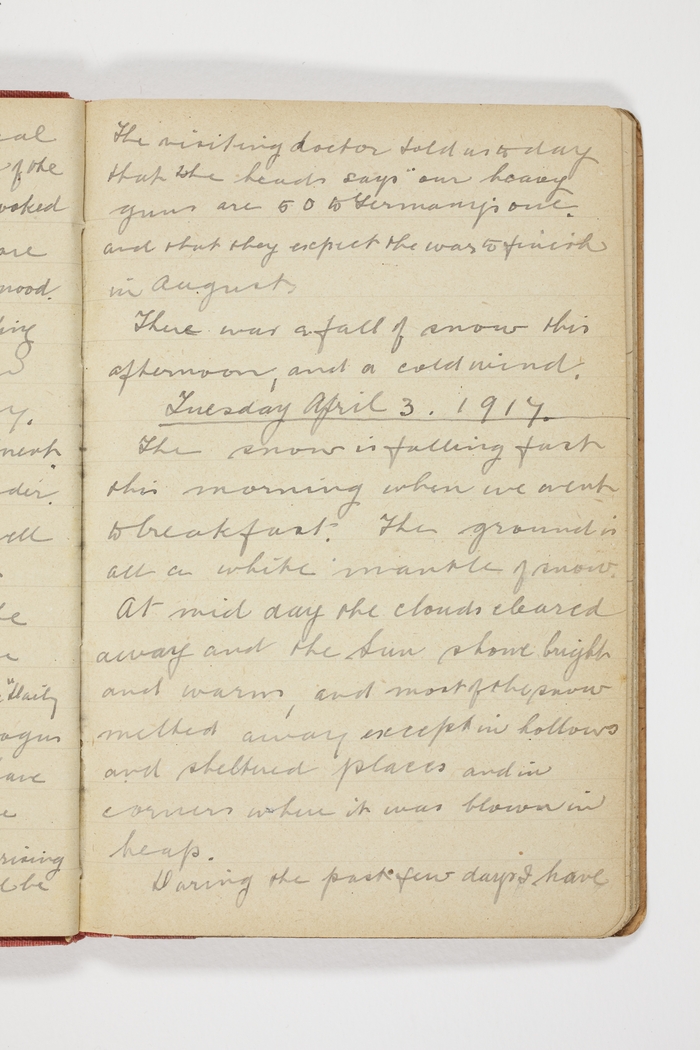 cal
of the
ooked
are
mood.
ing
y.
ment
der."
ell
be
"Daily
ogus
have
e
rising
d be
The visiting doctor told us to day
that "the heads says" our heavy
guns are 50 to Germany's one.
and that they expect the war to finish
in August.
There was a fall of snow this
afternoon, and a cold wind.
Tuesday April 3. 1917.
The snow is falling fast
this morning when we went
to breakfast. The ground is
all a white mantle of snow.
At mid day the clouds cleared
away and the Sun shone bright
and warm, and most of the snow
melted away except in hollows
and sheltered places and in
corners where it was blown in
heaps.
During the past few days I have